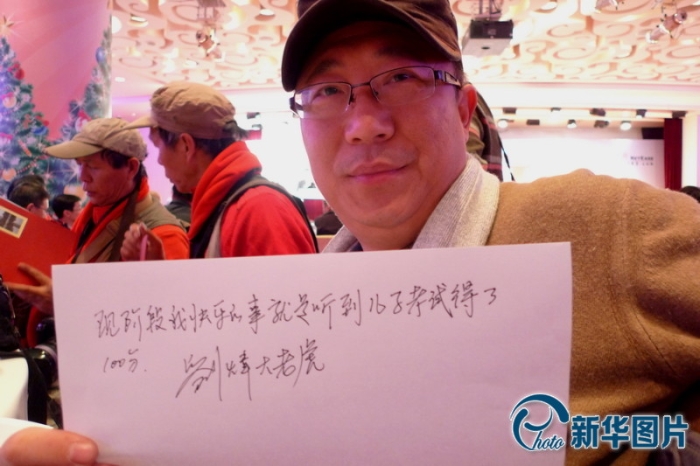 现阶段我快乐的事就是听到儿子考试得了
100分.
刘炜大老虎
Photo 新华图片